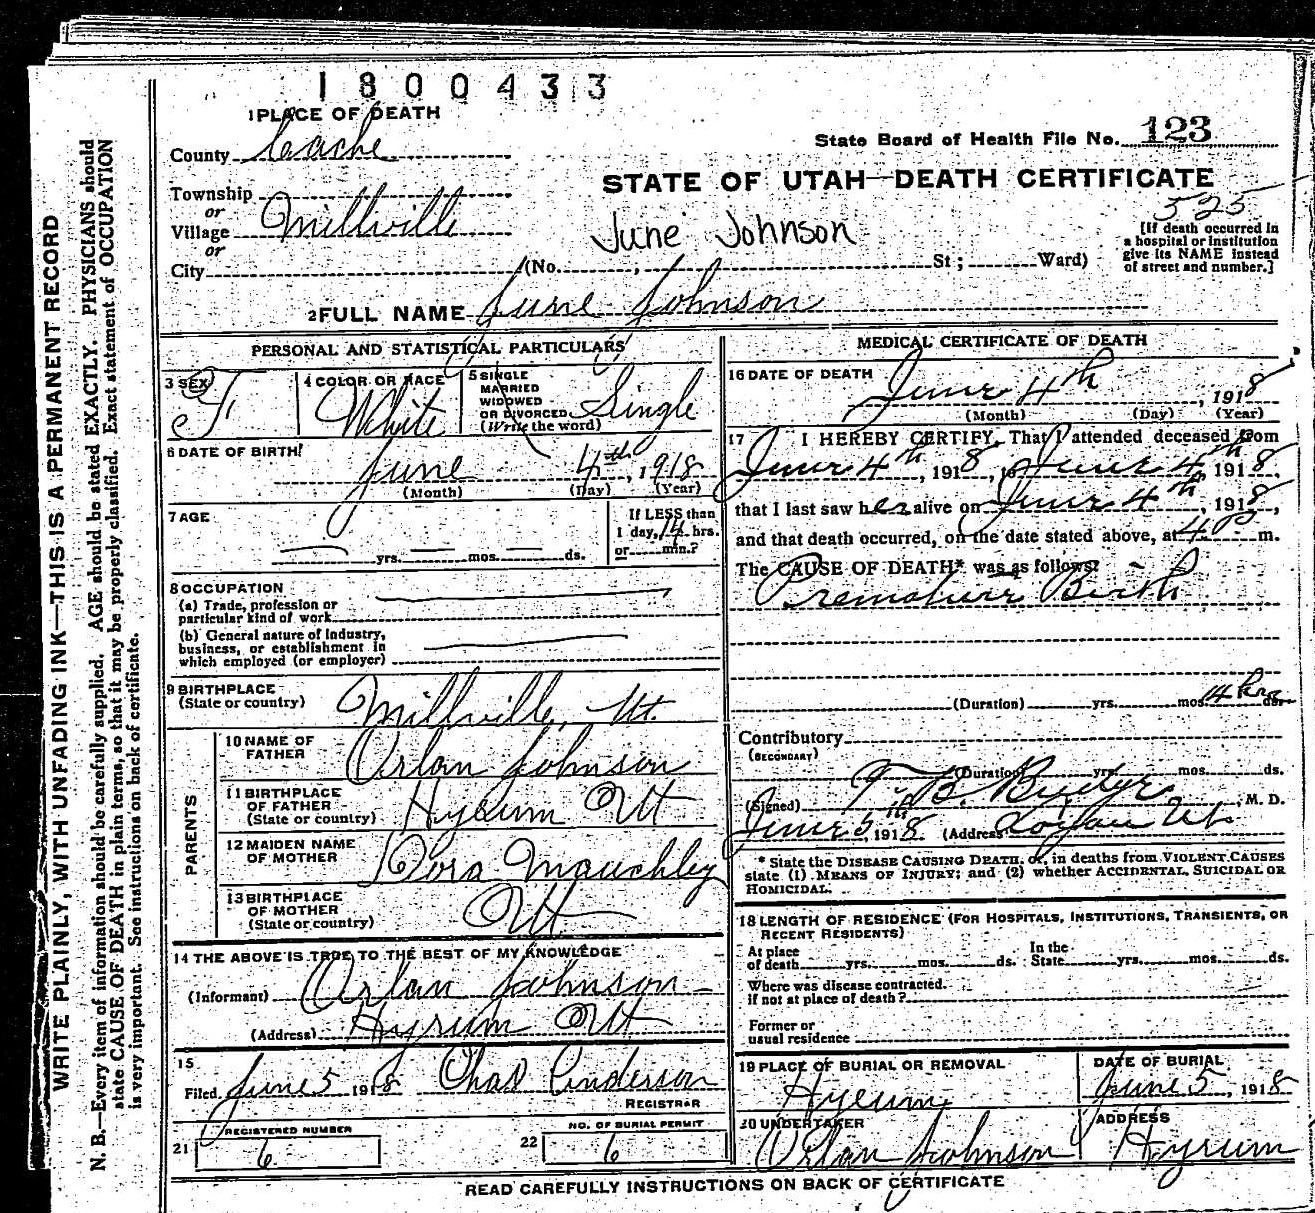 1800433
1 PLACE OF DEATH
County Cache
State Board of Health File No. 123
Township
or
Village Millville
or
City
STATE OF UTAH—DEATH CERTIFICATE
525
June Johnson
(No. , St; Ward)
[If death occurred in
a hospital or institution
give its NAME instead
of street and number.]
2 FULL NAME June Johnson
PERSONAL AND STATISTICAL PARTICULARS
3 SEX F
4 COLOR OR RACE White
5 SINGLE
MARRIED
WIDOWED
OR DIVORCED Single
(Write the word)
6 DATE OF BIRTH
June 4th, 1918
(Month) (Day) (Year)
7 AGE
If LESS than
1 day, 14 hrs.
— yrs. — mos. — ds. or min.?
8 OCCUPATION
(a) Trade, profession or
particular kind of work
(b) General nature of Industry,
business, or establishment in
which employed (or employer)
9 BIRTHPLACE
(State or country) Millville, Ut.
PARENTS
10 NAME OF
FATHER Orlan Johnson
11 BIRTHPLACE
OF FATHER
(State or country) Hyrum Ut
12 MAIDEN NAME
OF MOTHER Dora Mauchley
13 BIRTHPLACE
OF MOTHER
(State or country) Ut
14 THE ABOVE IS TRUE TO THE BEST OF MY KNOWLEDGE
(Informant) Orlan Johnson
(Address) Hyrum Ut
15
Filed June 5 1918 Chas Anderson
REGISTRAR
REGISTERED NUMBER
21 6
NO. OF BURIAL PERMIT
22 6
MEDICAL CERTIFICATE OF DEATH
16 DATE OF DEATH
June 4th, 1918
(Month) (Day) (Year)
17 I HEREBY CERTIFY, That I attended deceased from
June 4th, 1918, to June 4th 1918,
that I last saw her alive on June 4th, 1918,
and that death occurred, on the date stated above, at 4 P m.
The CAUSE OF DEATH* was as follows:
Premature Birth
(Duration) yrs. mos. 14 hrs ds.
Contributory
(SECONDARY)
(Duration) yrs. mos. ds.
(Signed) T. B. Budge, M. D.
June 5th, 1918 (Address) Logan Ut
* State the DISEASE CAUSING DEATH, or, in deaths from VIOLENT CAUSES
state (1) MEANS OF INJURY; and (2) whether ACCIDENTAL, SUICIDAL OR
HOMICIDAL.
18 LENGTH OF RESIDENCE (FOR HOSPITALS, INSTITUTIONS, TRANSIENTS, OR
RECENT RESIDENTS)
At place In the
of death yrs. mos. ds. State yrs. mos. ds.
Where was disease contracted.
if not at place of death?
Former or
usual residence
19 PLACE OF BURIAL OR REMOVAL
Hyrum
DATE OF BURIAL
June 5, 1918
20 UNDERTAKER
Orlan Johnson
ADDRESS
Hyrum
READ CAREFULLY INSTRUCTIONS ON BACK OF CERTIFICATE
WRITE PLAINLY, WITH UNFADING INK—THIS IS A PERMANENT RECORD
N. B.—Every item of information should be carefully supplied. AGE should be stated EXACTLY. PHYSICIANS should
state CAUSE OF DEATH in plain terms, so that it may be properly classified. Exact statement of OCCUPATION
is very important. See instructions on back of certificate.